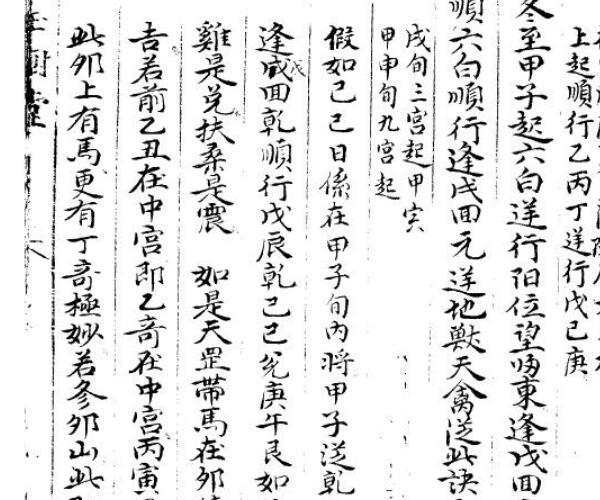 上起順行乙丙丁逆行戊己庚
冬至甲子起六白逆行陽位望歸東逢戊囬
順六白順行逢戊囬元逆地獸天禽從此訣
戌旬三宮起甲寅
甲申旬九宮起
假如己巳日係在甲子旬內將甲子從乾
逢戊囬乾順行戊辰乾己巳兌庚午艮如
雞是兌扶桑是震 如是天罡帶馬在卯
吉若前乙丑在中宮即乙奇在中宮丙寅
此卯上有馬更有丁奇極妙若參卯山此